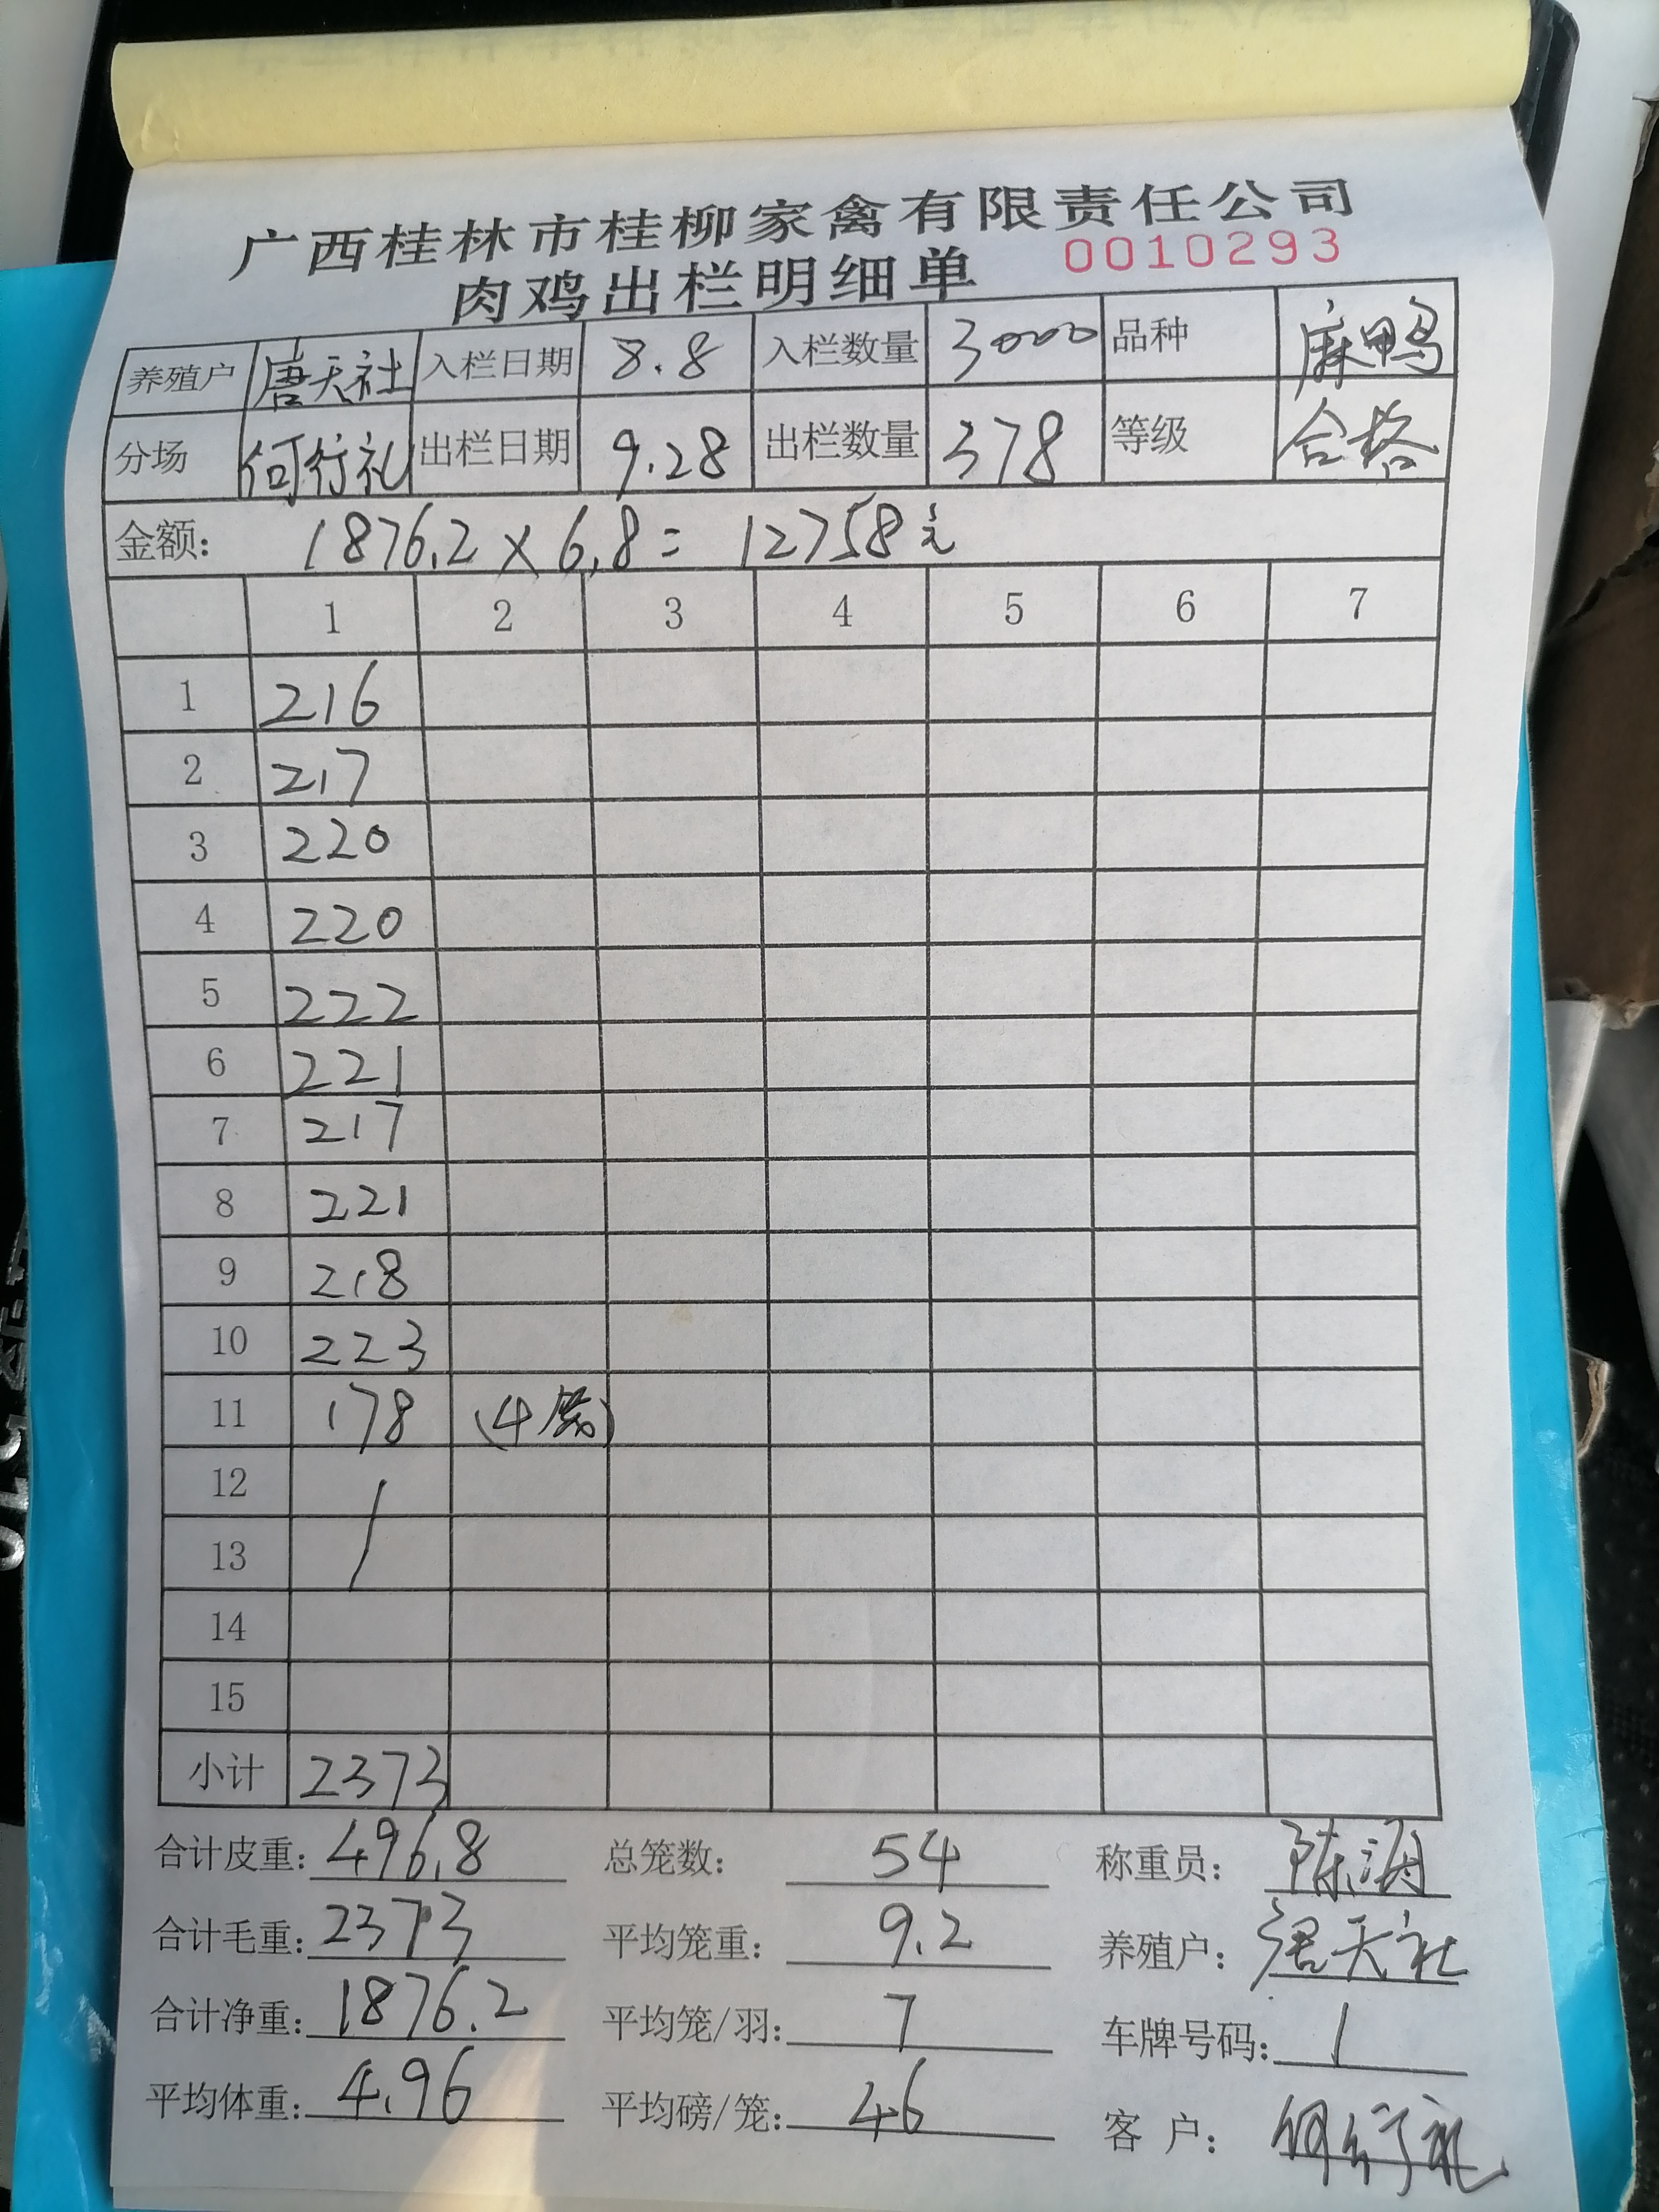 广西桂林市桂柳家禽有限责任公司
肉鸡出栏明细单 0010293
养殖户 唐天社 入栏日期 8.8 入栏数量 3000 品种 麻鸭
分场 何行礼 出栏日期 9.28 出栏数量 378 等级 合格
金额: 1876.2 × 6.8 = 12758元
1 2 3 4 5 6 7
1 216
2 217
3 220
4 220
5 222
6 221
7 217
8 221
9 218
10 223
11 178 (4笼)
12
13
14
15
小计 2373
合计皮重: 496.8 总笼数: 54 称重员:
合计毛重: 2373 平均笼重: 9.2 养殖户: 唐天社
合计净重: 1876.2 平均笼/羽: 7 车牌号码: 1
平均体重: 4.96 平均磅/笼: 46 客 户: 何行礼